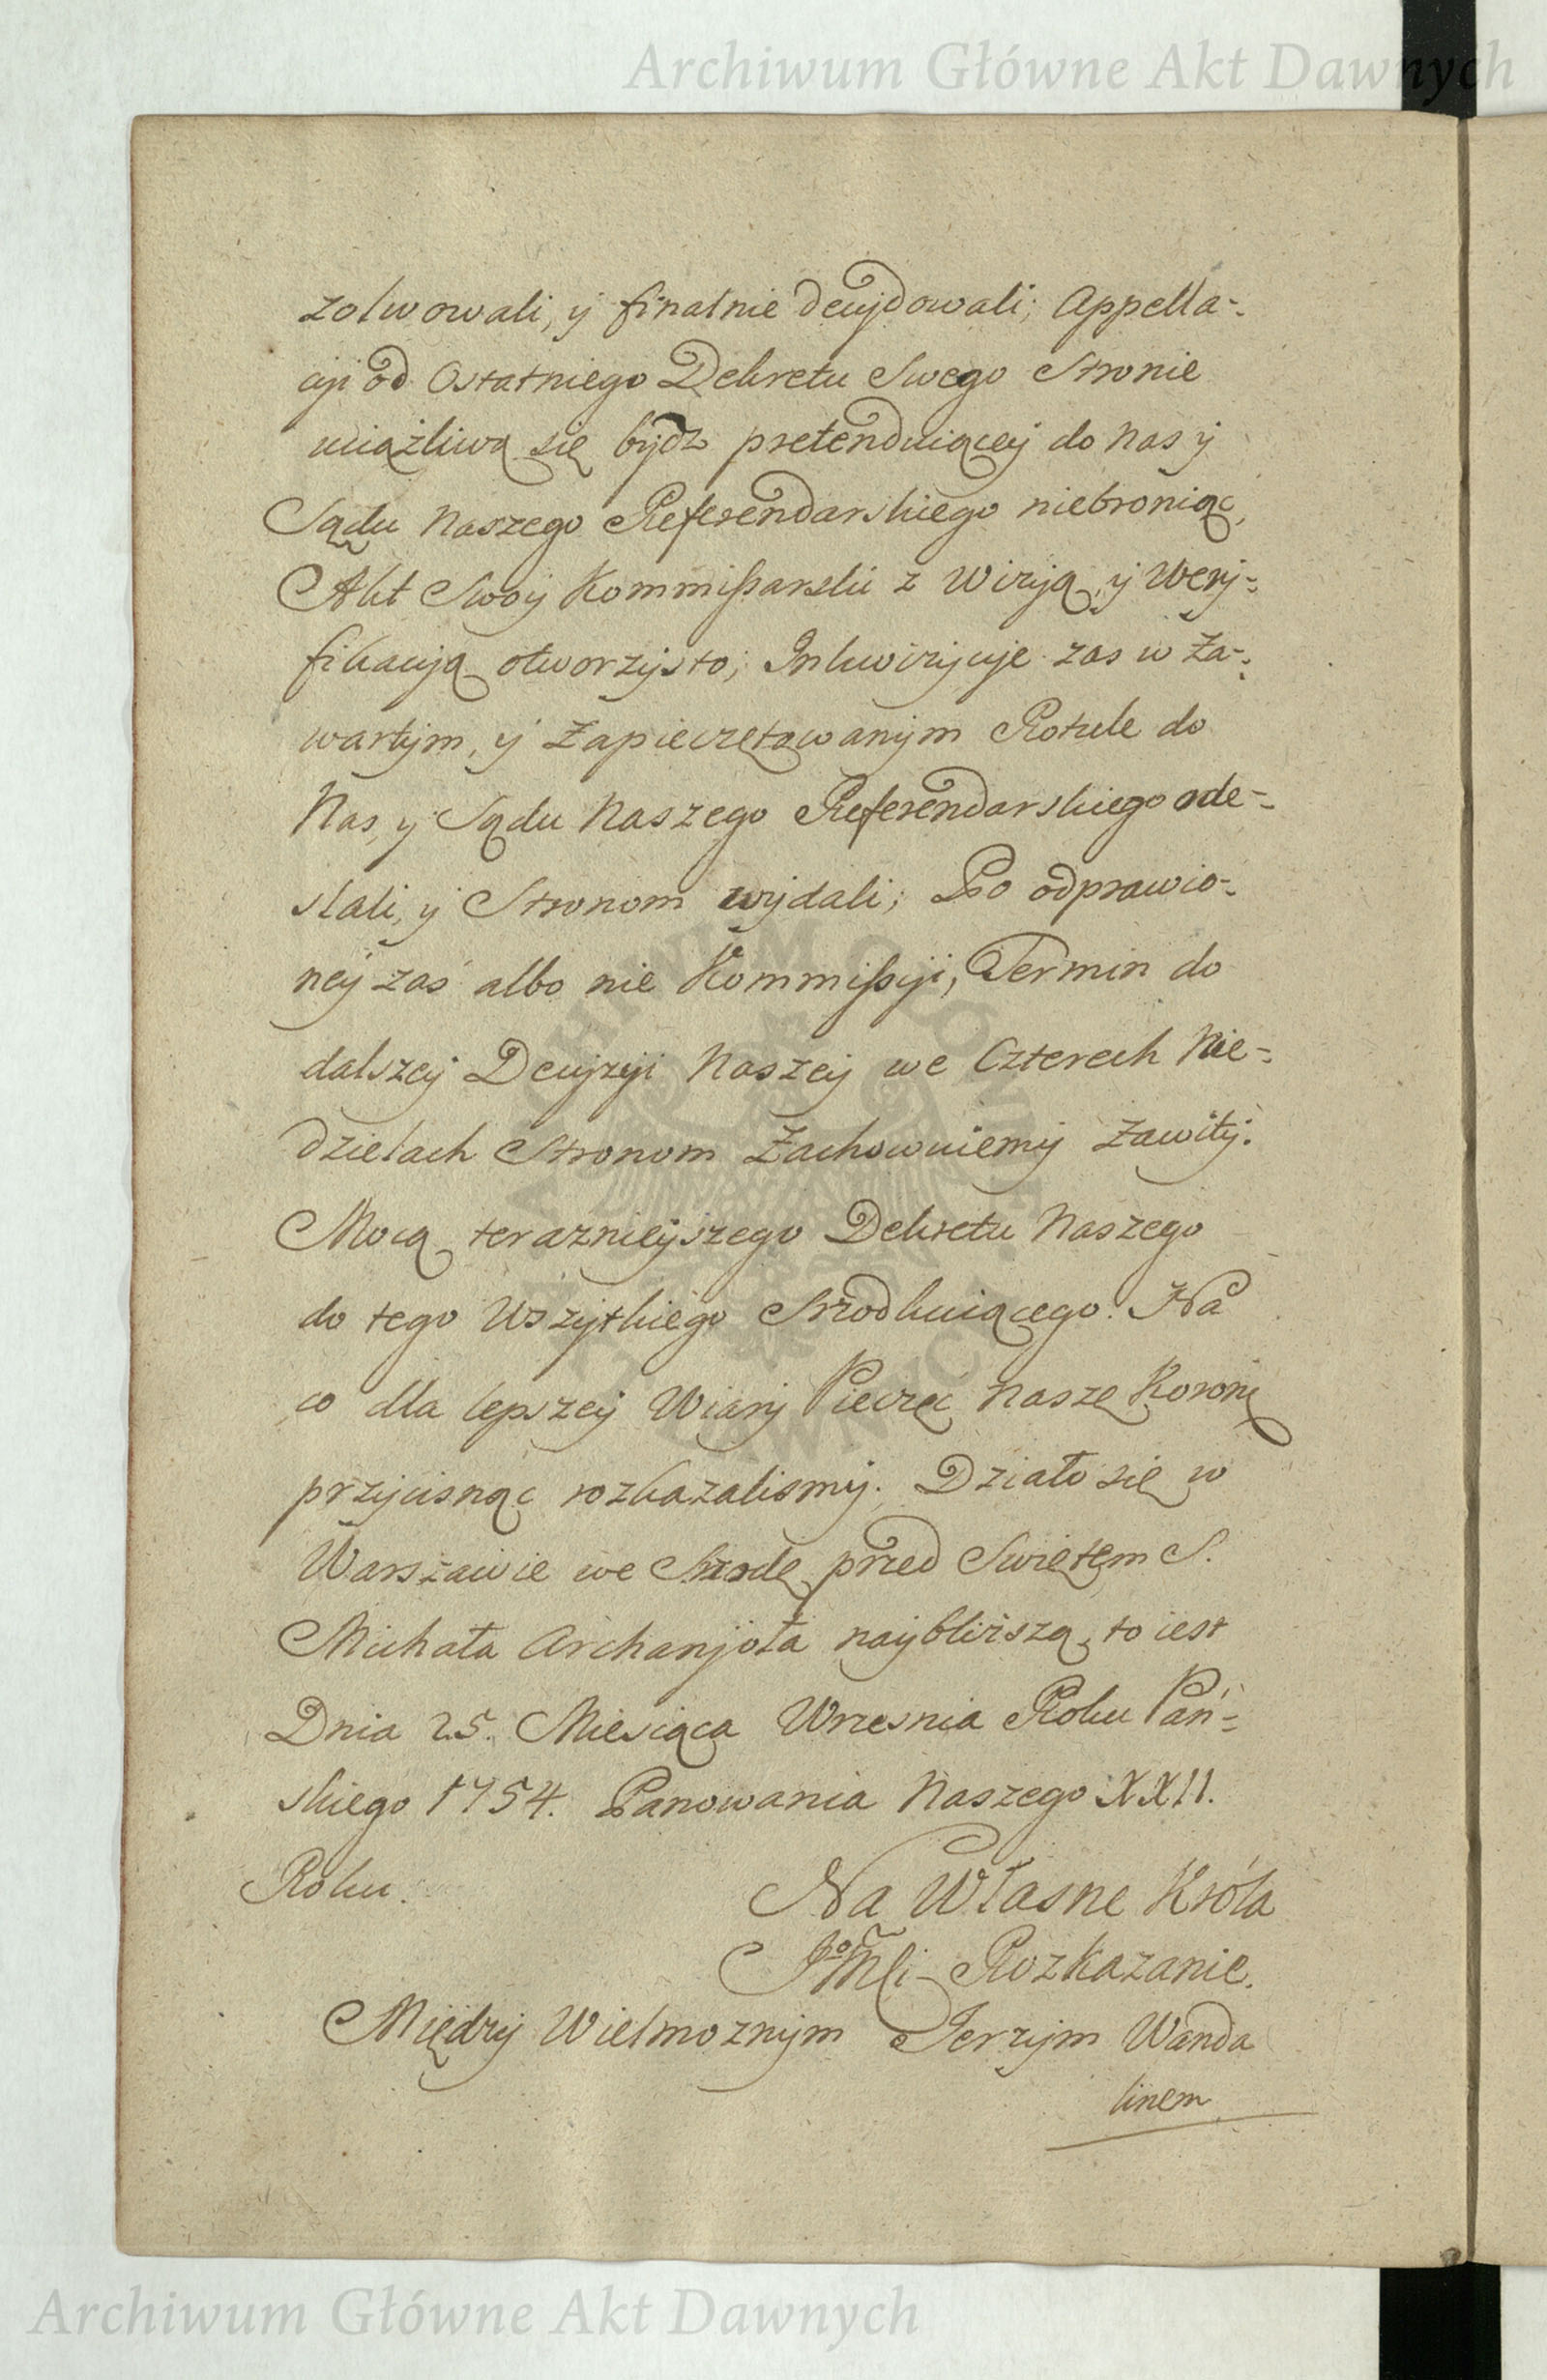 Archiwum Główne Akt Dawnych
zolwowali, y finalnie decydowali; Appella-
cyi od Ostatniego Dekretu Swego Stronie
uciążliwą się bydz pretenduiącey do Nas y
Sądu Naszego Referendarskiego niebroniąc,
Akt Swoy Kommissarski z Wizyą, y Wery-
fikacyą otworzysto; Inkwizycye zas w Za-
wartym, y Zapieczętowanym Rotule do
Nas, y Sądu Naszego Referendarskiego ode-
słali, y Stronom wydali; Po odprawio-
ney zaś albo nie Kommissyi, Termin do
dalszey Decyzyi Naszey we Czterech Nie-
dzielach Stronom Zachowuiemy Zawity.
Mocą terazniejszego Dekretu Naszego
do tego Wszytkiego Srzodkuiącego. Na
co dla lepszey Wiary Pieczęć Naszę Koronę
przycisnąc rozkazalismy. Działo się w
Warszawie we Srzodę przed Swiętem S.
Michała Archanjoła naybliższą, to iest
Dnia 25. Miesiąca Wrzesnia Roku Pań-
skiego 1754. Panowania Naszego XXII.
Roku.
Na Własne Króla
JoMści Rozkazanie.
Między Wielmoznym Jerzym Wanda
linem
Archiwum Główne Akt Dawnych